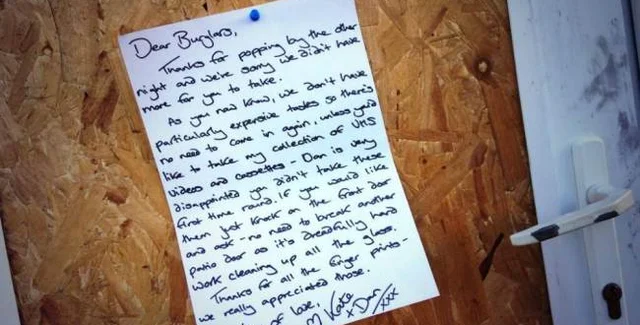 Dear Burglars,
Thanks for popping by the other
night and we're sorry we didn't have
more for you to take.
As you now know, we don't have
particularly expensive tastes so there's
no need to come in again, unless you'd
like to take my collection of VHS
videos and cassettes - Dan is very
disappointed you didn't take these
first time round. If you would like
them just knock on the front door
and ask - no need to break another
patio door as it's dreadfully hard
work cleaning up all the glass.
Thanks for all the finger prints -
we really appreciated those.
of love,
Kate
x Dan xxx